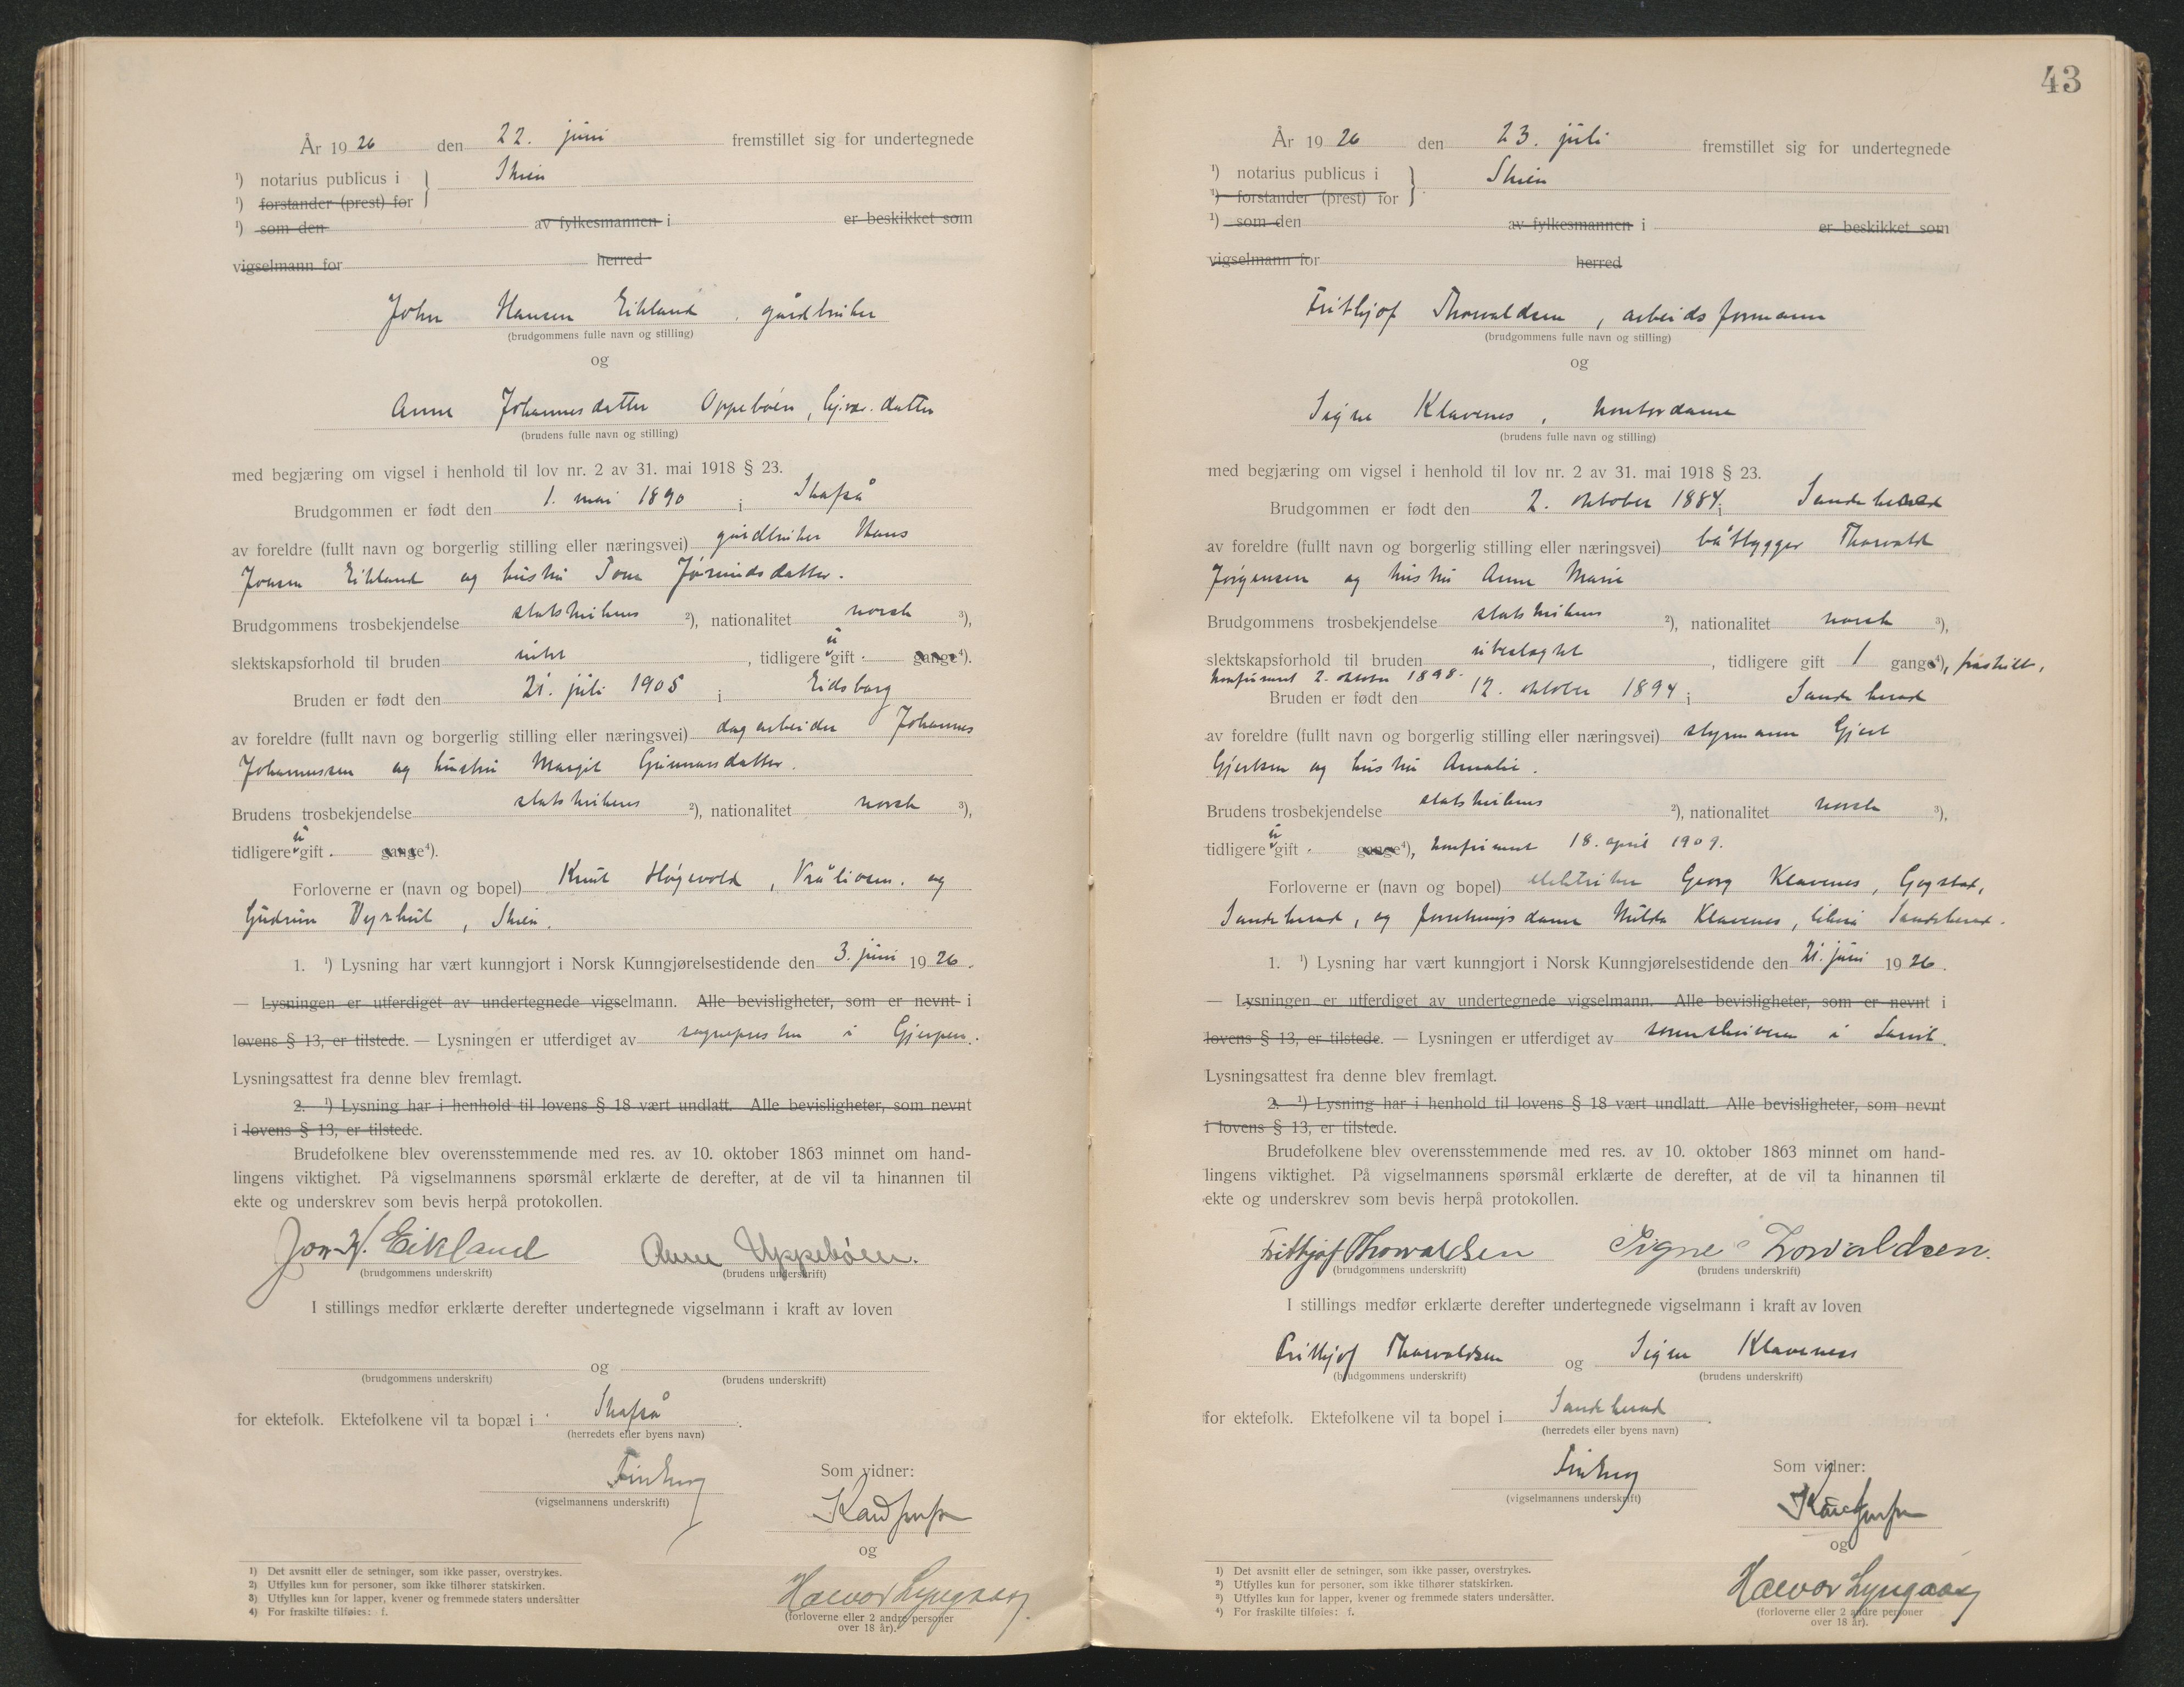 År 1926 den 22. juni fremstillet sig for undertegnede
¹) notarius publicus i } Skien
¹) forstander (prest) for
¹) som den av fylkesmannen i er beskikket som
vigselmann for herred
John Hansen Eikland, gårdbruker
(brudgommens fulle navn og stilling)
og
Anne Johannesdatter Oppebøen, hj.vær. datter
(brudens fulle navn og stilling)
med begjæring om vigsel i henhold til lov nr. 2 av 31. mai 1918 § 23.
Brudgommen er født den 1. mai 1890 i Skafså
av foreldre (fullt navn og borgerlig stilling eller næringsvei) gårdbruker Hans
Jonsen Eikland og hustru Tone Jørundsdatter.
Brudgommens trosbekjendelse statskirkens ²), nationalitet norsk ³),
slektskapsforhold til bruden intet, tidligere u gift gange⁴).
Bruden er født den 21. juli 1905 i Eidsborg
av foreldre (fullt navn og borgerlig stilling eller næringsvei) dagarbeider Johannes
Johannessen og hustru Margit Gunnarsdatter.
Brudens trosbekjendelse statskirkens ²), nationalitet norsk ³),
tidligere u gift gange⁴).
Forloverne er (navn og bopel) Knut Høgevold, Vråliosen. og
Gudrun Dyrkut, Skien.
1. ¹) Lysning har vært kunngjort i Norsk Kunngjørelsestidende den 3. juni 1926.
— Lysningen er utferdiget av undertegnede vigselmann. Alle bevisligheter, som er nevnt i
lovens § 13, er tilstede. — Lysningen er utferdiget av sognepresten i Gjerpen.
Lysningsattest fra denne blev fremlagt.
2. ¹) Lysning har i henhold til lovens § 18 vært undlatt. Alle bevisligheter, som nevnt
i lovens § 13, er tilstede.
Brudefolkene blev overensstemmende med res. av 10. oktober 1863 minnet om hand-
lingens viktighet. På vigselmannens spørsmål erklærte de derefter, at de vil ta hinannen til
ekte og underskrev som bevis herpå protokollen.
Jon H. Eikland Anne Uppeböen.
(brudgommens underskrift) (brudens underskrift)
I stillings medfør erklærte derefter undertegnede vigselmann i kraft av loven
og
(brudgommens underskrift) (brudens underskrift)
for ektefolk. Ektefolkene vil ta bopæl i Skafså
(herredets eller byens navn)
Som vidner:
(vigselmannens underskrift)
og
Halvor Lyngaas
(forloverne eller 2 andre personer
over 18 år).
1) Det avsnitt eller de setninger, som ikke passer, overstrykes.
2) Utfylles kun for personer, som ikke tilhører statskirken.
3) Utfylles kun for lapper, kvener og fremmede staters undersåtter
4) For fraskilte tilføies: f.
43
År 1926 den 23. juli fremstillet sig for undertegnede
¹) notarius publicus i } Skien
¹) forstander (prest) for
¹) som den av fylkesmannen i er beskikket som
vigselmann for herred
Frithjof Thorvaldsen, arbeidsformann
(brudgommens fulle navn og stilling)
og
Signe Klavenes, kontordame
(brudens fulle navn og stilling)
med begjæring om vigsel i henhold til lov nr. 2 av 31. mai 1918 § 23.
Brudgommen er født den 2. oktober 1884 i Sandeherad
av foreldre (fullt navn og borgerlig stilling eller næringsvei) båtbygger Thorvald
Jørgensen og hustru Anne Marie
Brudgommens trosbekjendelse statskirkens ²), nationalitet norsk ³),
slektskapsforhold til bruden ubeslægtet, tidligere gift 1 gange⁴), fraskilt,
konfirmert 2. oktober 1898.
Bruden er født den 12. oktober 1894 i Sandeherad
av foreldre (fullt navn og borgerlig stilling eller næringsvei) styrmann Gjert
Gjertsen og hustru Amalie.
Brudens trosbekjendelse statskirkens ²), nationalitet norsk ³),
tidligere u gift gange⁴), konfirmert 18. april 1909.
Forloverne er (navn og bopel) elektriker Georg Klavenes, Gogstad,
Sandeherad, og forretningsdame Hulda Klavenes, Sandeherad.
1. ¹) Lysning har vært kunngjort i Norsk Kunngjørelsestidende den 21. juni 1926.
— Lysningen er utferdiget av undertegnede vigselmann. Alle bevisligheter, som er nevnt i
lovens § 13, er tilstede. — Lysningen er utferdiget av sorenskriveren i Larvik.
Lysningsattest fra denne blev fremlagt.
2. ¹) Lysning har i henhold til lovens § 18 vært undlatt. Alle bevisligheter, som nevnt
i lovens § 13, er tilstede.
Brudefolkene blev overensstemmende med res. av 10. oktober 1863 minnet om hand-
lingens viktighet. På vigselmannens spørsmål erklærte de derefter, at de vil ta hinannen til
ekte og underskrev som bevis herpå protokollen.
Frithjof Thorvaldsen Signe Torvaldsen.
(brudgommens underskrift) (brudens underskrift)
I stillings medfør erklærte derefter undertegnede vigselmann i kraft av loven
Frithjof Thorvaldsen og Signe Klaveness
(brudgommens underskrift) (brudens underskrift)
for ektefolk. Ektefolkene vil ta bopel i Sandeherad
(herredets eller byens navn)
Som vidner:
(vigselmannens underskrift)
og
Halvor Lyngaas
(forloverne eller 2 andre personer
over 18 år).
¹) Det avsnitt eller de setninger, som ikke passer, overstrykes.
²) Utfylles kun for personer, som ikke tilhører statskirken.
³) Utfylles kun for lapper, kvener og fremmede staters undersåtter.
⁴) For fraskilte tilføies: f.